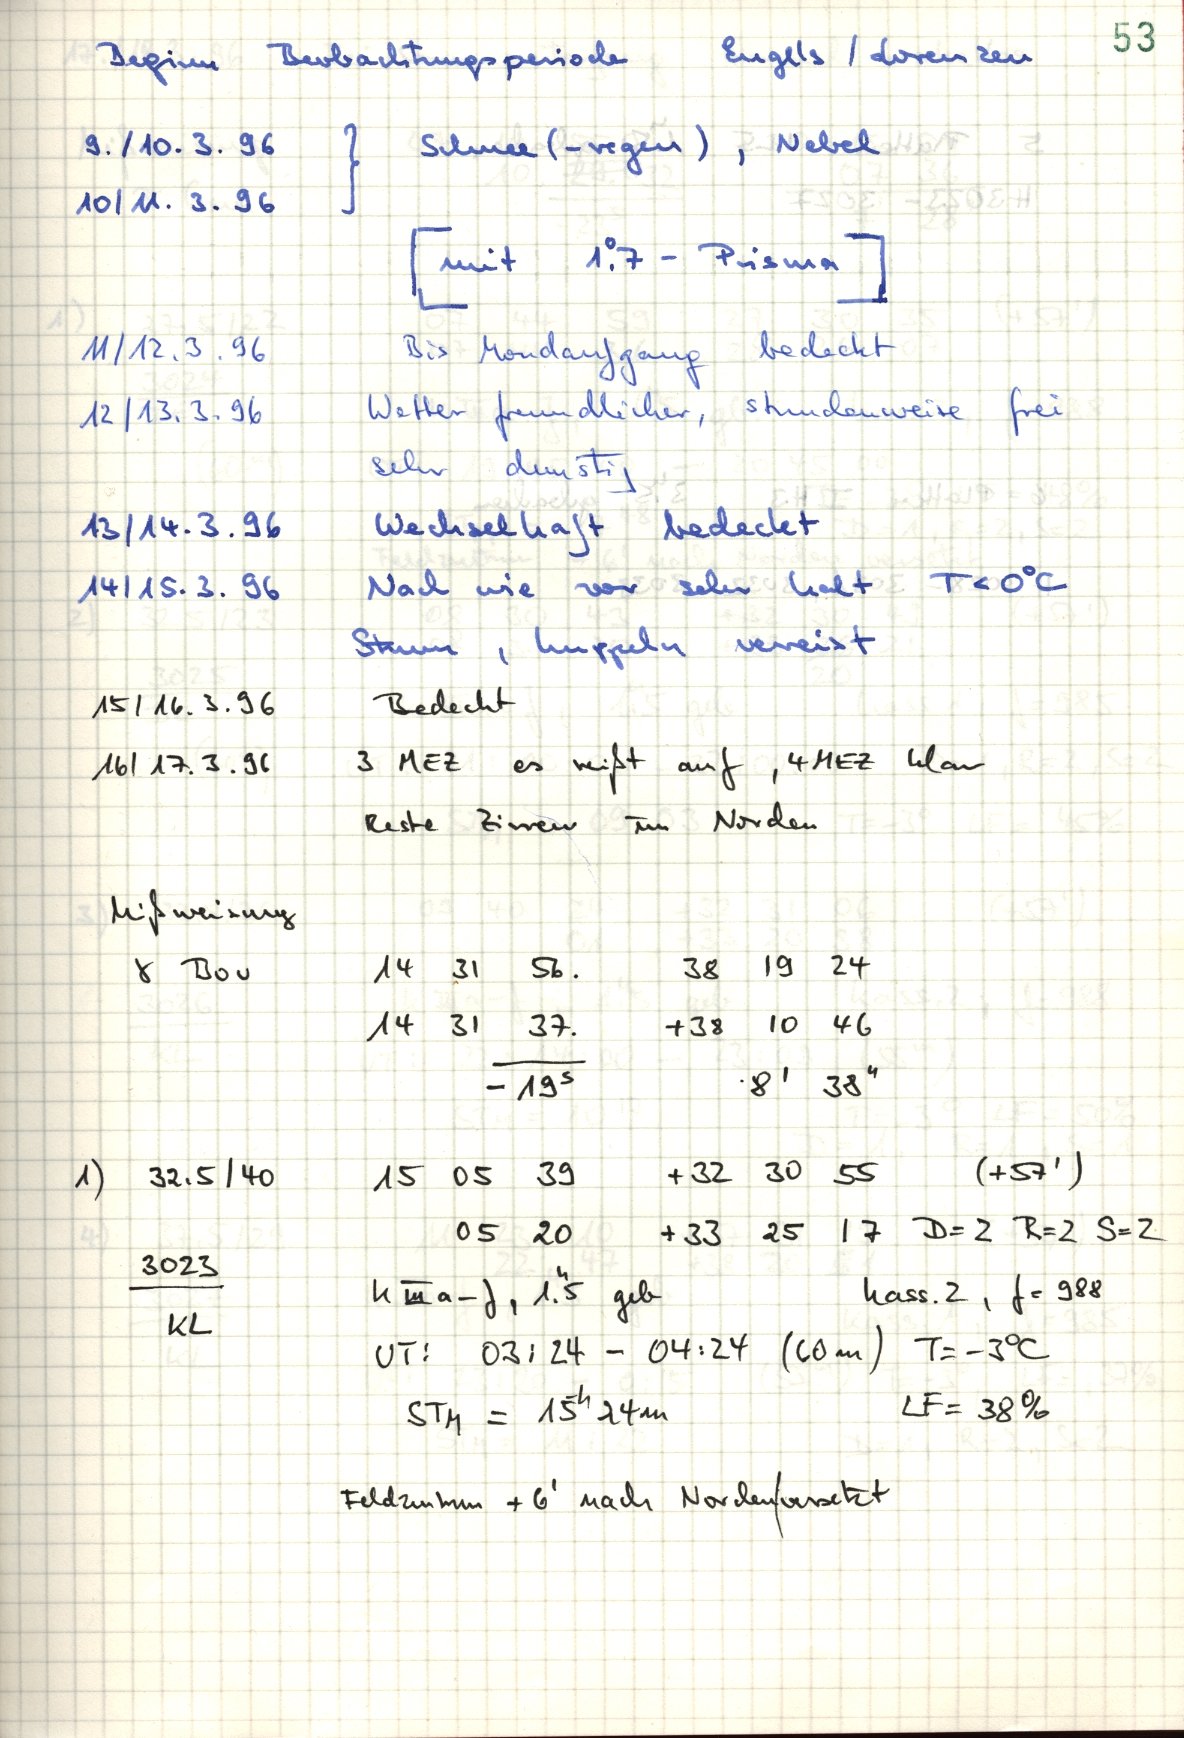 53
Beginn Beobachtungsperiode Engels / Lorenzen
9./10.3.96 } Schnee(-regen), Nebel
10/11.3.96
[mit 1°.7 - Prisma]
11/12.3.96 Bis Mondaufgang bedeckt
12/13.3.96 Wetter freundlicher, stundenweise frei
sehr dunstig
13/14.3.96 Wechselhaft bedeckt
14/15.3.96 Nach wie vor sehr kalt T<0°C
Sturm, Kuppeln vereist
15/16.3.96 Bedeckt
16/17.3.96 3 MEZ es reißt auf, 4 MEZ klar
Reste Zirren im Norden
Mißweisung
γ Boo 14 31 56. 38 19 24
14 31 37. +38 10 46
-19s 8' 38"
1) 32.5/40 15 05 39 +32 30 55 (+57')
05 20 +33 25 17 D=2 R=2 S=2
3023 K III a-J, 1.h5 geb Kass.2, f=988
KL
UT: 03:24 - 04:24 (60m) T=-3°C
STM = 15h 24m LF=38%
Feldzentrum +6' nach Norden versetzt